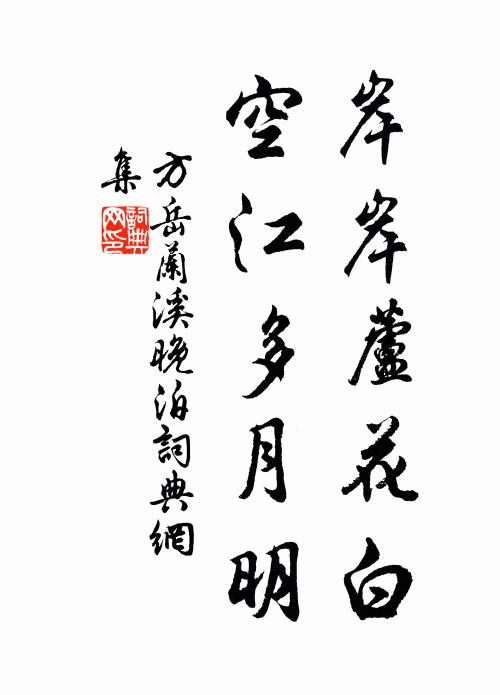 岸岸蘆花白
空江多月明
方岳蘭溪晚泊詞典網
集
詞典
网印